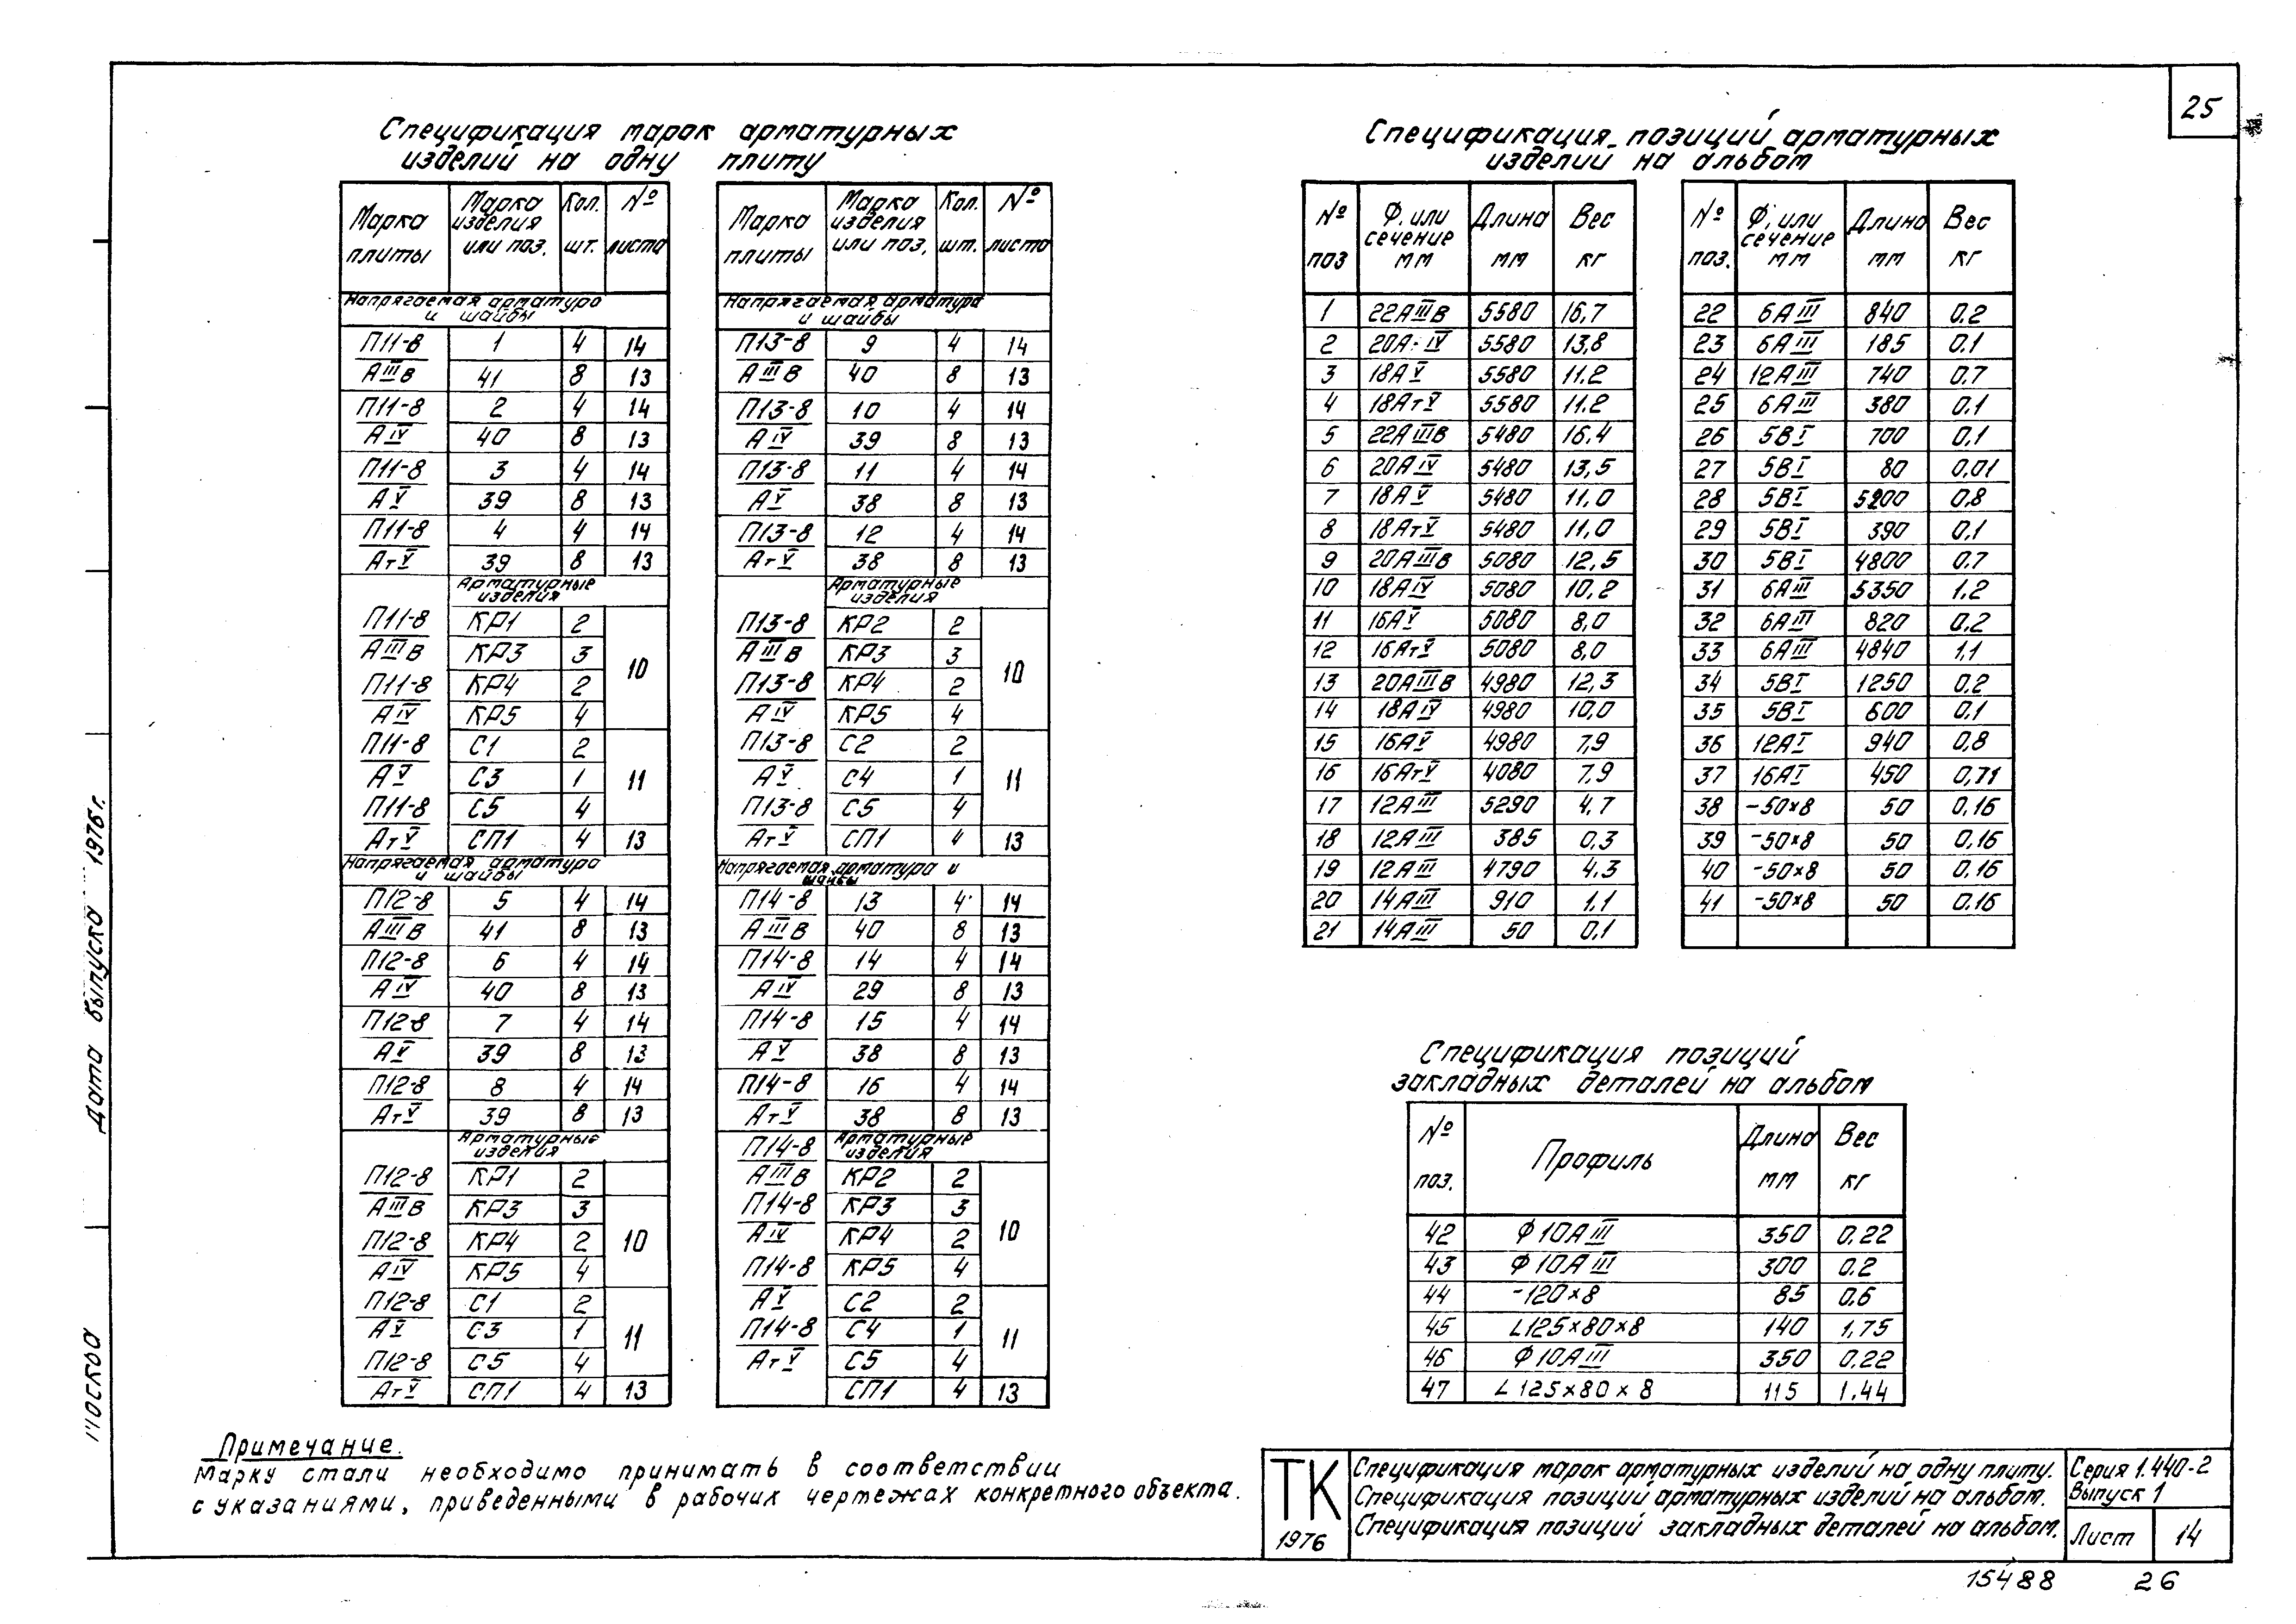 25
Спецификация марок арматурных
изделий на одну плиту
Марка плиты | Марка изделия или поз. | Кол. шт. | № листа
Напрягаемая арматура и шайбы
П11-8 | 1 | 4 | 14
АIIIв | 41 | 8 | 13
П11-8 | 2 | 4 | 14
АIV | 40 | 8 | 13
П11-8 | 3 | 4 | 14
АV | 39 | 8 | 13
П11-8 | 4 | 4 | 14
АтV | 39 | 8 | 13
Арматурные изделия
П11-8 | КР1 | 2
АIIIв | КР3 | 3 | 10
П11-8 | КР4 | 2
АIV | КР5 | 4
П11-8 | С1 | 2
АV | С3 | 1 | 11
П11-8 | С5 | 4
АтV | СП1 | 4 | 13
Напрягаемая арматура и шайбы
П12-8 | 5 | 4 | 14
АIIIв | 41 | 8 | 13
П12-8 | 6 | 4 | 14
АIV | 40 | 8 | 13
П12-8 | 7 | 4 | 14
АV | 39 | 8 | 13
П12-8 | 8 | 4 | 14
АтV | 39 | 8 | 13
Арматурные изделия
П12-8 | КР1 | 2
АIIIв | КР3 | 3
П12-8 | КР4 | 2 | 10
АIV | КР5 | 4
П12-8 | С1 | 2
АV | С3 | 1 | 11
П12-8 | С5 | 4
АтV | СП1 | 4 | 13
Марка плиты | Марка изделия или поз. | Кол. шт. | № листа
Напрягаемая арматура и шайбы
П13-8 | 9 | 4 | 14
АIIIв | 40 | 8 | 13
П13-8 | 10 | 4 | 14
АIV | 39 | 8 | 13
П13-8 | 11 | 4 | 14
АV | 38 | 8 | 13
П13-8 | 12 | 4 | 14
АтV | 38 | 8 | 13
Арматурные изделия
П13-8 | КР2 | 2
АIIIв | КР3 | 3 | 10
П13-8 | КР4 | 2
АIV | КР5 | 4
П13-8 | С2 | 2
АV | С4 | 1 | 11
П13-8 | С5 | 4
АтV | СП1 | 4 | 13
Напрягаемая арматура и шайбы
П14-8 | 13 | 4 | 14
АIIIв | 40 | 8 | 13
П14-8 | 14 | 4 | 14
АIV | 29 | 8 | 13
П14-8 | 15 | 4 | 14
АV | 38 | 8 | 13
П14-8 | 16 | 4 | 14
АтV | 38 | 8 | 13
П14-8 | Арматурные изделия
АIIIв | КР2 | 2
П14-8 | КР3 | 3
АIV | КР4 | 2 | 10
П14-8 | КР5 | 4
АV | С2 | 2
П14-8 | С4 | 1 | 11
АтV | С5 | 4
СП1 | 4 | 13
Спецификация позиций арматурных
изделий на альбом
№ поз | Ф. или сечение мм | Длина мм | Вес кг
1 | 22АIIIв | 5580 | 16,7
2 | 20АIV | 5580 | 13,8
3 | 18АV | 5580 | 11.2
4 | 18АтV | 5580 | 11.2
5 | 22АIIIв | 5480 | 16,4
6 | 20АIV | 5480 | 13,5
7 | 18АV | 5480 | 11,0
8 | 18АтV | 5480 | 11,0
9 | 20АIIIв | 5080 | 12,5
10 | 18АIV | 5080 | 10,2
11 | 16АV | 5080 | 8,0
12 | 16АтV | 5080 | 8,0
13 | 20АIIIв | 4980 | 12,3
14 | 18АIV | 4980 | 10,0
15 | 16АV | 4980 | 7,9
16 | 16АтV | 4080 | 7,9
17 | 12АIII | 5290 | 4,7
18 | 12АIII | 385 | 0,3
19 | 12АIII | 4790 | 4,3
20 | 14АIII | 910 | 1.1
21 | 14АIII | 50 | 0,1
№ поз. | Ф. или сечение мм | Длина мм | Вес кг
22 | 6АIII | 840 | 0.2
23 | 6АIII | 185 | 0.1
24 | 12АIII | 740 | 0.7
25 | 6АIII | 380 | 0.1
26 | 5ВI | 700 | 0,1
27 | 5ВI | 80 | 0,01
28 | 5ВI | 5200 | 0,8
29 | 5ВI | 390 | 0,1
30 | 5ВI | 4800 | 0.7
31 | 6АIII | 5350 | 1.2
32 | 6АIII | 820 | 0.2
33 | 6АIII | 4840 | 1,1
34 | 5ВI | 1250 | 0.2
35 | 5ВI | 600 | 0.1
36 | 12АI | 940 | 0,8
37 | 16АI | 450 | 0,71
38 | -50×8 | 50 | 0,16
39 | -50×8 | 50 | 0,16
40 | -50×8 | 50 | 0.16
41 | -50×8 | 50 | 0.16
Спецификация позиций
закладных деталей на альбом
№ поз. | Профиль | Длина мм | Вес кг
42 | Ф10АIII | 350 | 0,22
43 | Ф10АIII | 300 | 0.2
44 | -120×8 | 85 | 0,6
45 | L125×80×8 | 140 | 1,75
46 | Ф10АIII | 350 | 0,22
47 | L125×80×8 | 115 | 1.44
Примечание.
Марку стали необходимо принимать в соответствии
с указаниями, приведенными в рабочих чертежах конкретного объекта.
ТК
1976
Спецификация марок арматурных изделий на одну плиту.
Спецификация позиций арматурных изделий на альбом.
Спецификация позиций закладных деталей на альбом.
Серия 1.440-2
Выпуск 1
Лист 14
15488 26
Москва Дата выпуска 1976г.